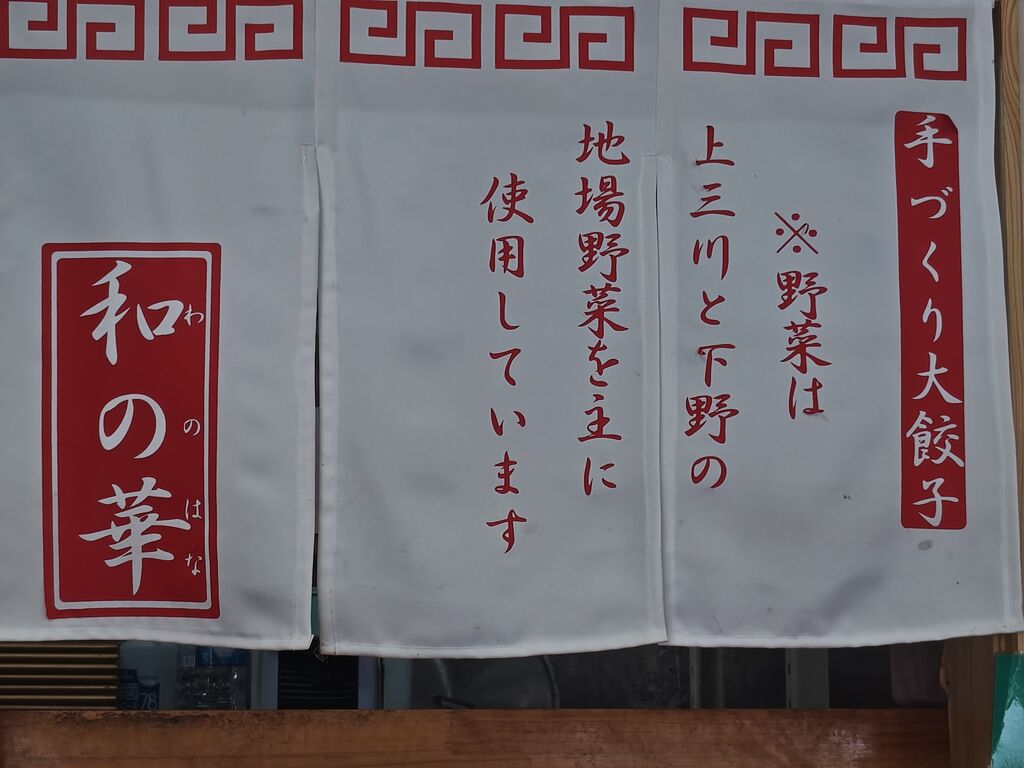 手づくり大餃子
※野菜は
上三川と下野の
地場野菜を主に
使用しています
和の華
わのはな
78